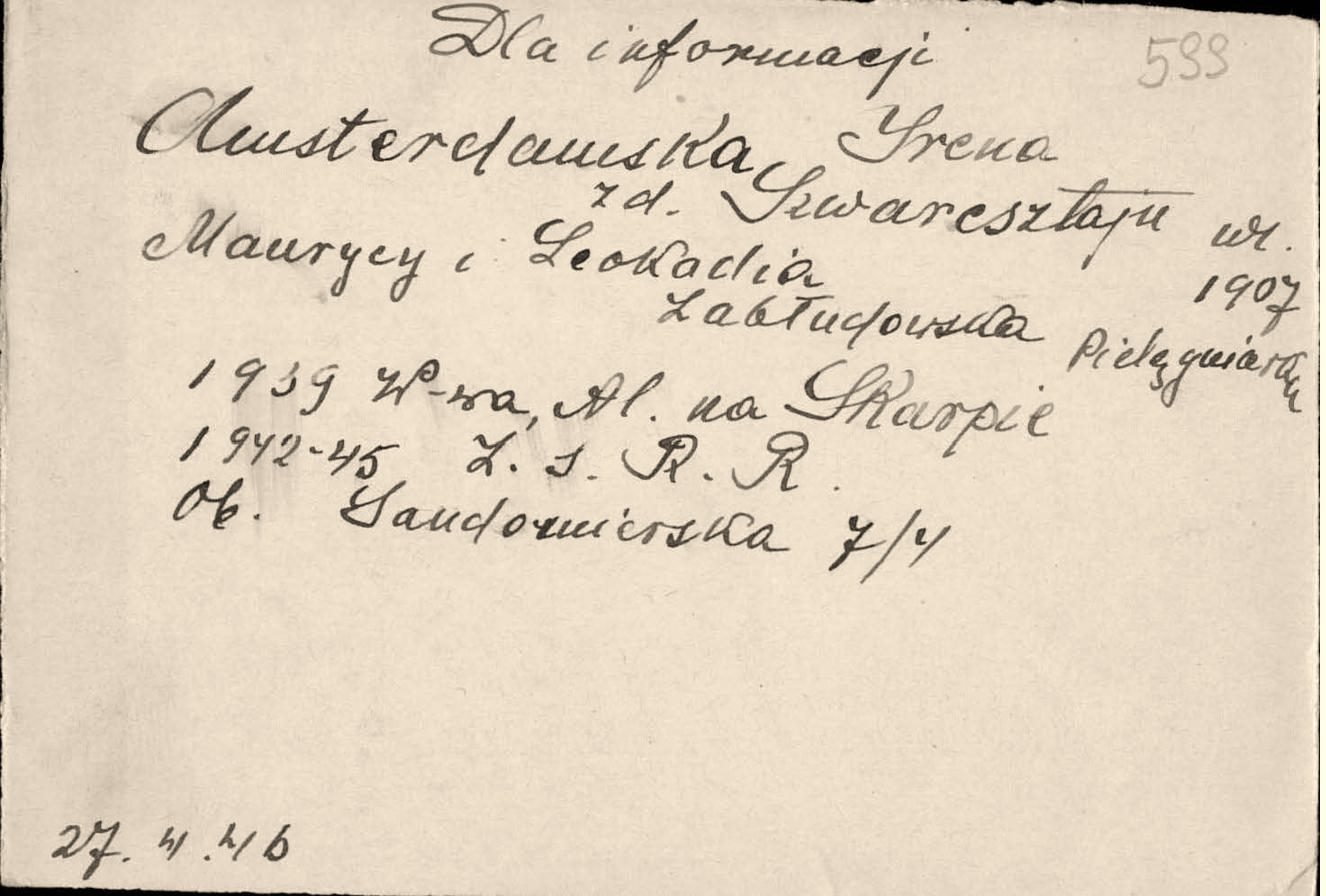 Dla informacji 599
Amsterdamska Irena
z d. Szwarcsztajn ur.
1907
Maurycy i Leokadia
Zabłudowska Pielęgniarka
1939 W-wa, Al. na Skarpie
1942-45 Z. S. R. R.
Ob. Sandomierska 7/4
27. 4. 46